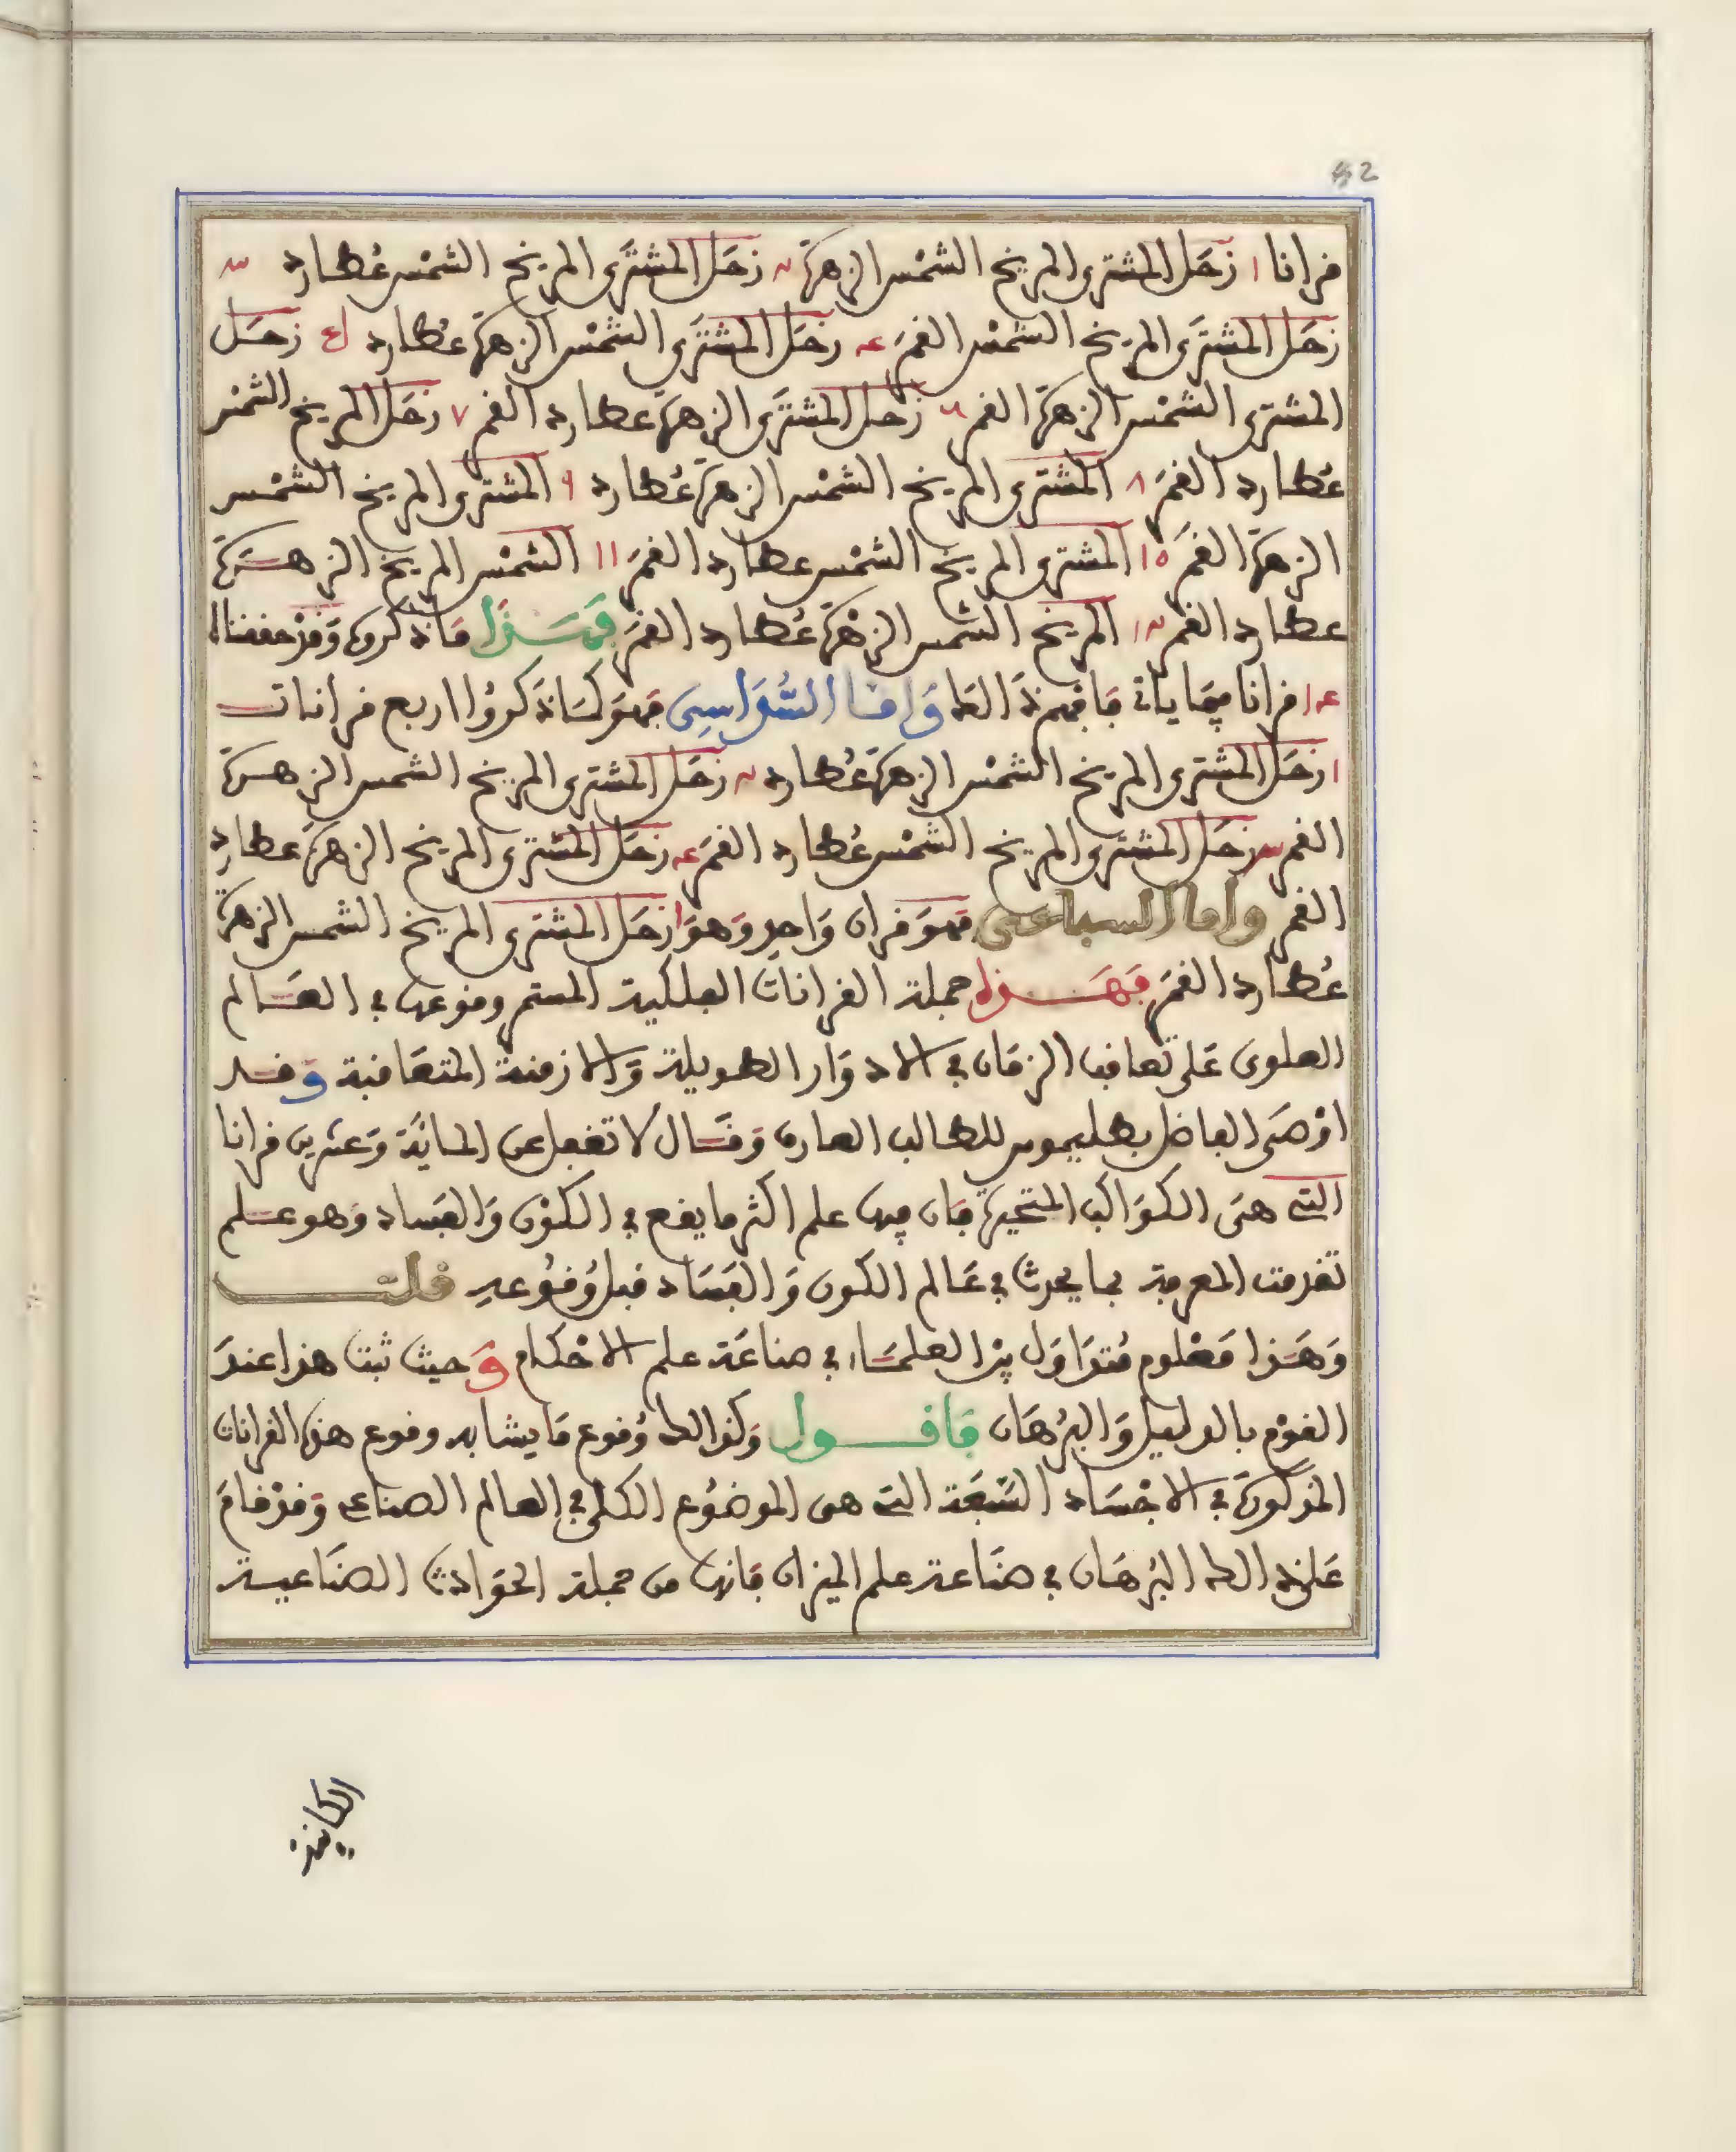 82
قرانا ١ زحل المشترى المريخ الشمس الزهرة ٢ زحل المشترى المريخ الشمس عطارد ٣
زحل المشترى المريخ الشمس القمر ٤ زحل المشترى الشمس الزهرة عطارد ٥ زحل
المشترى الشمس الزهرة القمر ٦ زحل المشترى الزهرة عطارد القمر ٧ زحل المريخ الشمس
عطارد القمر ٨ المشترى المريخ الشمس الزهرة عطارد ٩ المشترى المريخ الشمس
الزهرة القمر ١٥ المشترى المريخ الشمس عطارد القمر ١١ الشمس المريخ الزهرة
عطارد القمر ١٢ المريخ الشمس الزهرة عطارد القمر فهذا ما ذكروه وقد حققنا
١٤ قرانا فيما ياتي فافهم ذالك واما السداسى فهو كما ذكروا اربع قرانات
١ زحل المشترى المريخ الشمس الزهرة عطارد ٢ زحل المشترى المريخ الشمس الزهرة
القمر ٣ زحل المشترى المريخ الشمس عطارد القمر ٤ زحل المشترى المريخ الزهرة عطارد
القمر واما السباعى فهو قران واحد وهو ١ زحل المشترى المريخ الشمس الزهرة
عطارد القمر فهذه جملة القرانات الفلكية المستمر وقوعها في العالم
العلوى على تعاقب الزمان في الادوار الطويلة والازمنة المتعاقبة وقد
اوصى الفاضل بطليموس للطالب العارف وقال لا تغفل عن الماية وعشرين قرانا
التي هى الكواكب المتحيرة فان فيها علم اكثر ما يقع في الكون والفساد وهو علم
تقدمت المعرفة بما يحدث في عالم الكون والفساد قبل وقوعه قلت
وهذا معلوم متداول بين العلماء في صناعة علم الاحكام وحيث ثبت هذا عند
القوم بالدليل والبرهان فاقول وكذالك وقوع ما يشابه وقوع هذه القرانات
المذكورة في الاجساد السبعة التي هى الموضوع الكلى في العالم الصناعى وقد قام
على ذالك البرهان في صناعة علم الميزان فانها من جملة الحوادث الصناعية